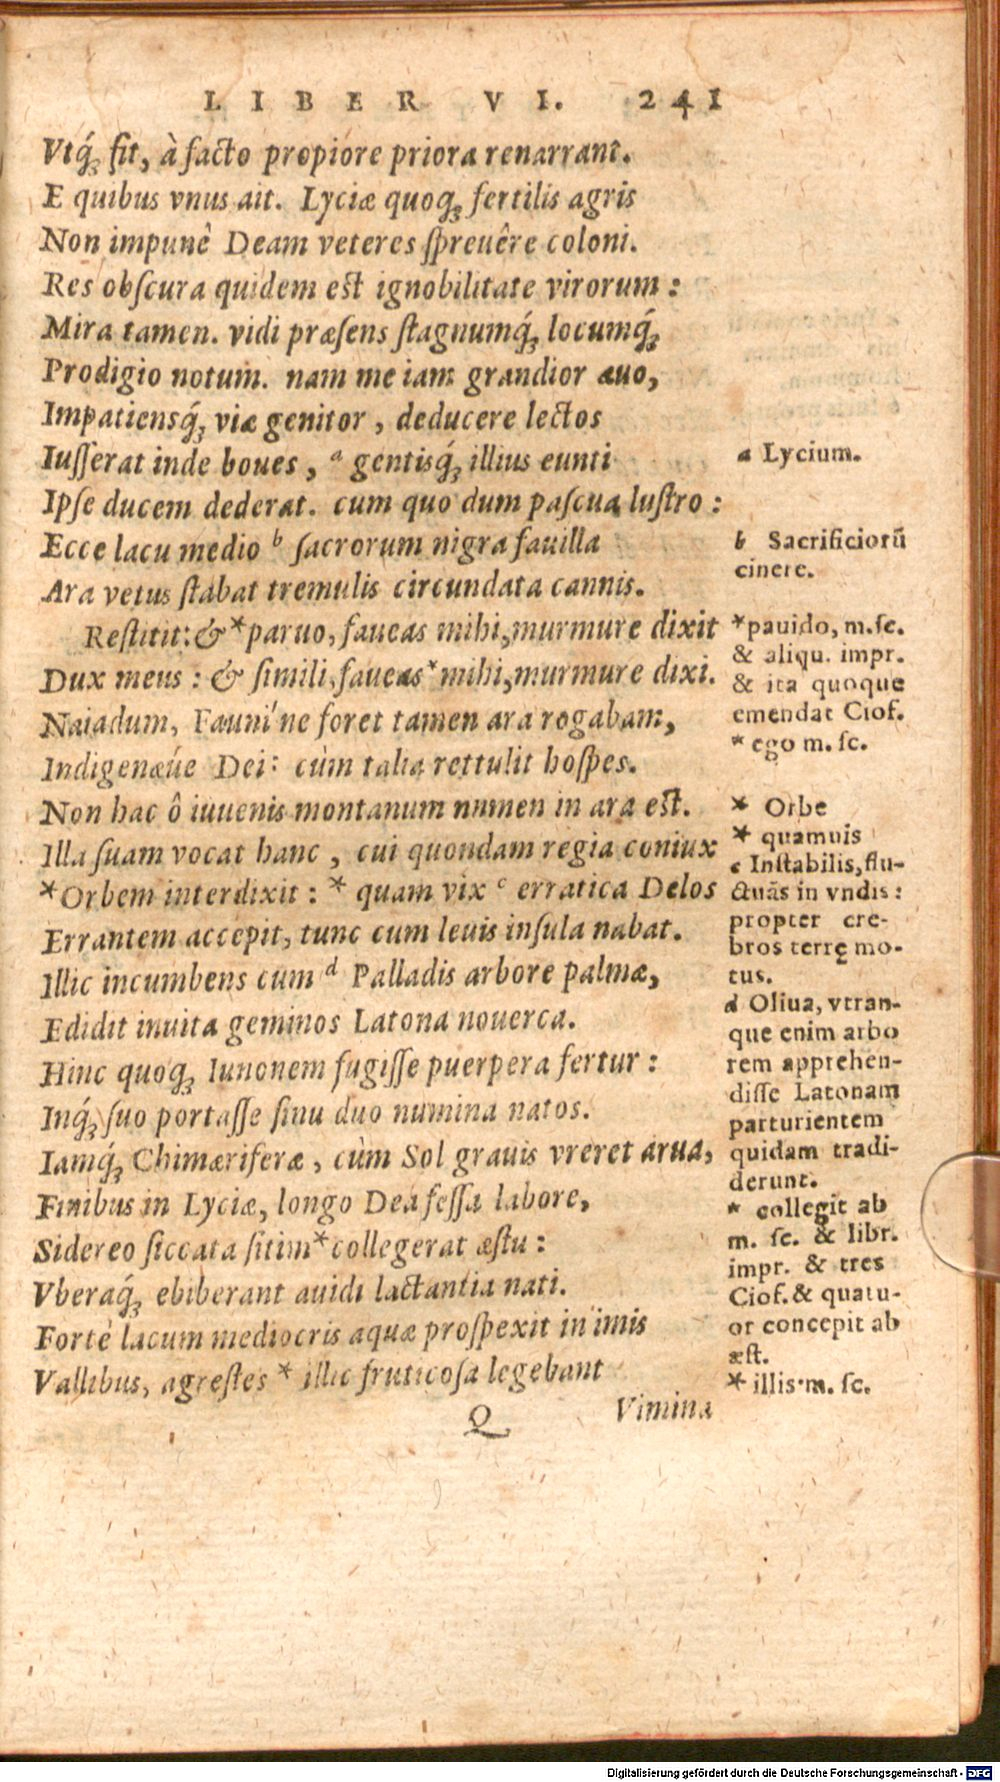 LIBER VI. 241
Vtq́ꝫ fit, à facto propiore priora renarrant.
E quibus vnus ait. Lyciæ quoqꝫ fertilis agris
Non impunè Deam veteres ſpreuêre coloni.
Res obſcura quidem eſt ignobilitate virorum :
Mira tamen. vidi præſens ſtagnumq́ꝫ locumq́ꝫ
Prodigio notum. nam me iam grandior æuo,
Impatiensq́ꝫ viæ genitor , deducere lectos
Iuſſerat inde boues , ᵃ gentisq́ꝫ illius eunti
Ipſe ducem dederat. cum quo dum paſcua luſtro :
Ecce lacu medio ᵇ ſacrorum nigra fauilla
Ara vetus ſtabat tremulis circundata cannis.
Reſtitit: & *paruo, faueas mihi, murmure dixit
Dux meus : & ſimili, faueas* mihi, murmure dixi.
Naiadum, Fauni'ne foret tamen ara rogabam,
Indigenæúe Dei: cùm talia rettulit hoſpes.
Non hac ô iuuenis montanum numen in ara eſt.
Illa ſuam vocat hanc , cui quondam regia coniux
*Orbem interdixit : * quam vix ᶜ erratica Delos
Errantem accepit, tunc cum leuis inſula nabat.
Illic incumbens cum ᵈ Palladis arbore palmæ,
Edidit inuita geminos Latona nouerca.
Hinc quoqꝫ Iunonem fugiſſe puerpera fertur :
Inq́ꝫ ſuo portaſſe ſinu duo numina natos.
Iamq́ꝫ Chimæriferæ , cùm Sol grauis vreret arua,
Finibus in Lyciæ, longo Dea feſſa labore,
Sidereo ſiccata ſitim*collegerat æſtu :
Vberaq́ꝫ ebiberant auidi lactantia nati.
Fortè lacum mediocris aquæ proſpexit in imis
Vallibus, agreſtes * illic fruticoſa legebant
Q Vimina
a Lycium.
b Sacrificiorū
cinere.
*pauido, m.ſc.
& aliqu. impr.
& ita quoque
emendat Ciof.
* ego m. ſc.
* Orbe
* quamuis
c Inſtabilis, flu-
ctuās in vndis :
propter cre-
bros terrę mo-
tus.
d Oliua, vtran-
que enim arbo
rem apprehen-
diſſe Latonam
parturientem
quidam tradi-
derunt.
* collegit ab
m. ſc. & libr.
impr. & tres
Ciof. & quatu-
or concepit ab
æſt.
* illis m. ſc.
Digitalisierung gefördert durch die Deutsche Forschungsgemeinschaft - DFG